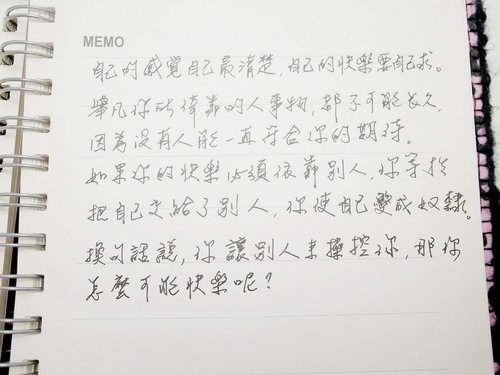 MEMO
自己的感覺自己最清楚，自己的快樂要自己求。
舉凡你所倚靠的人事物，都不可能長久，
因為沒有人能一直符合你的期待。
如果你的快樂必須依靠別人，你等於
把自己交給了別人，你使自己變成奴隸。
換句話說，你讓別人來操控你，那你
怎麼可能快樂呢？